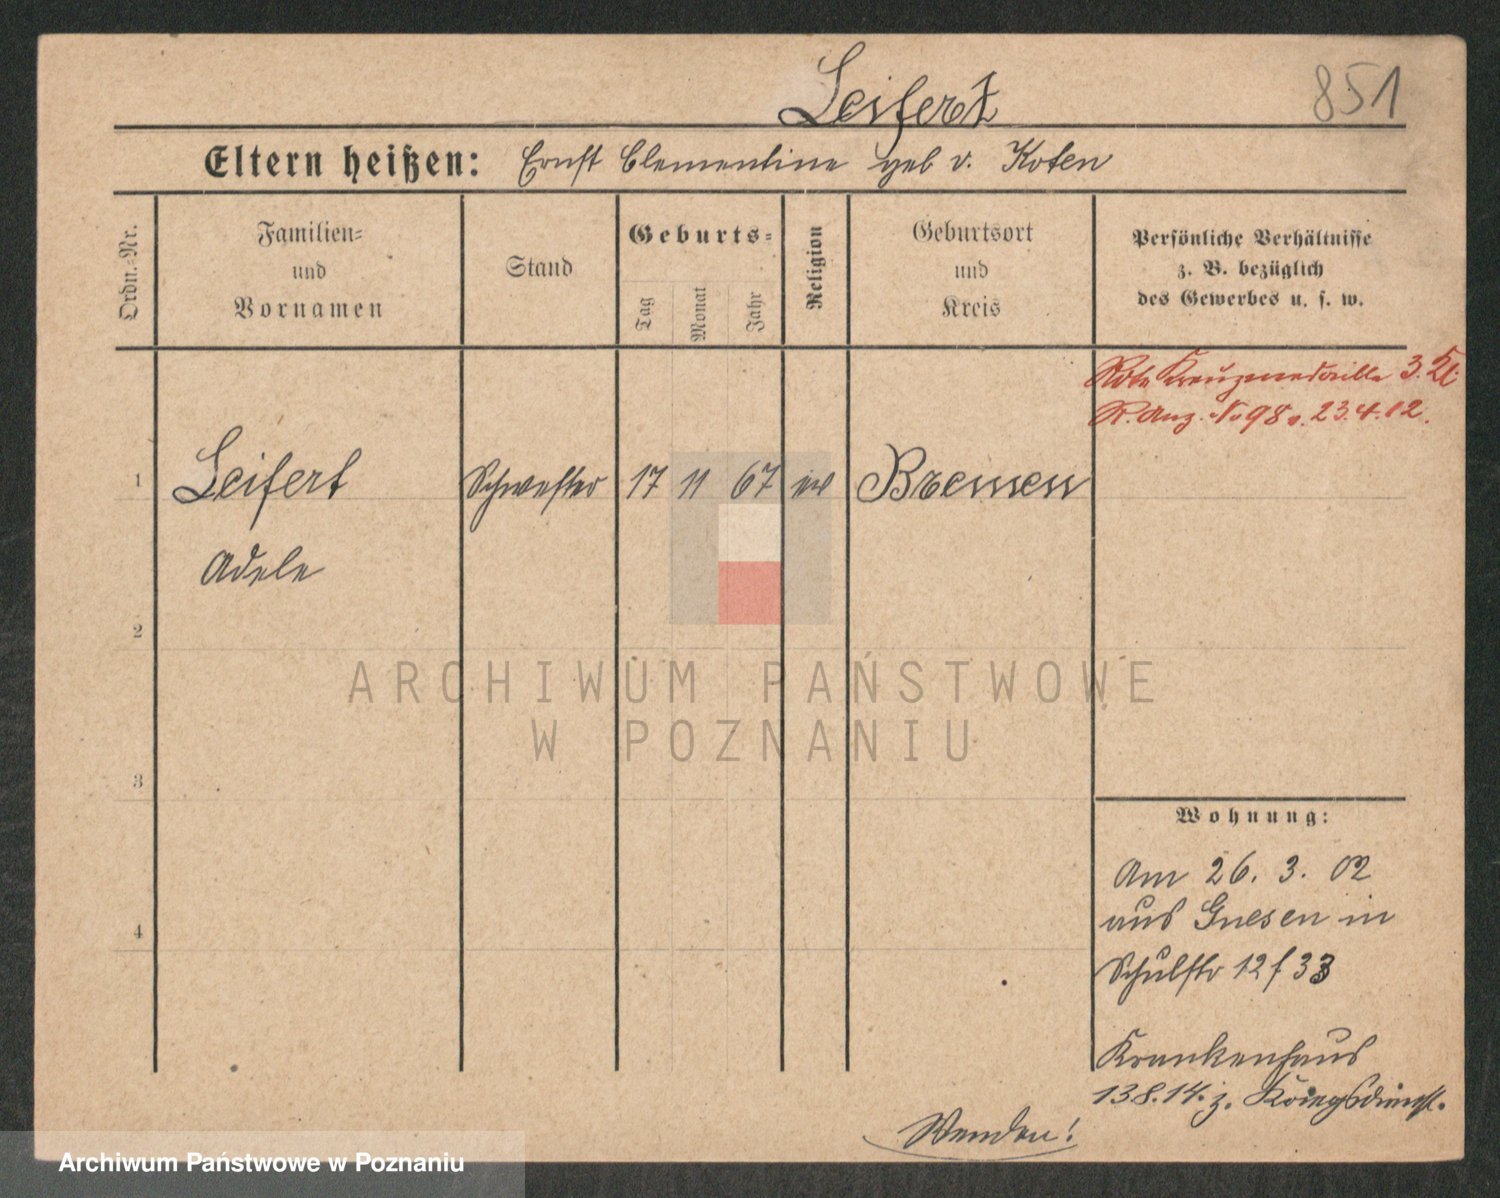 Leifert
851
Eltern heißen: Ernst Clementine geb v. Koten
Ordn.-Nr.
Familien-
und
Vornamen
Stand
Geburts-
Tag
Monat
Jahr
Religion
Geburtsort
und
Kreis
Persönliche Verhältnisse
z. B. bezüglich
des Gewerbes u. s. w.
Rote Kreuzmedaille 3. Kl.
R. Anz. No 98 v. 23.4.12.
1
Leifert
Schwester
17
11
67
Bremen
Adele
2
3
4
ARCHIWUM PAŃSTWOWE
W POZNANIU
Wohnung:
Am 26. 3. 02
aus Gnesen in
Schulstr 12/33
Krankenhaus
13.8.14. z. Kriegsdienst.
Wenden!
Archiwum Państwowe w Poznaniu